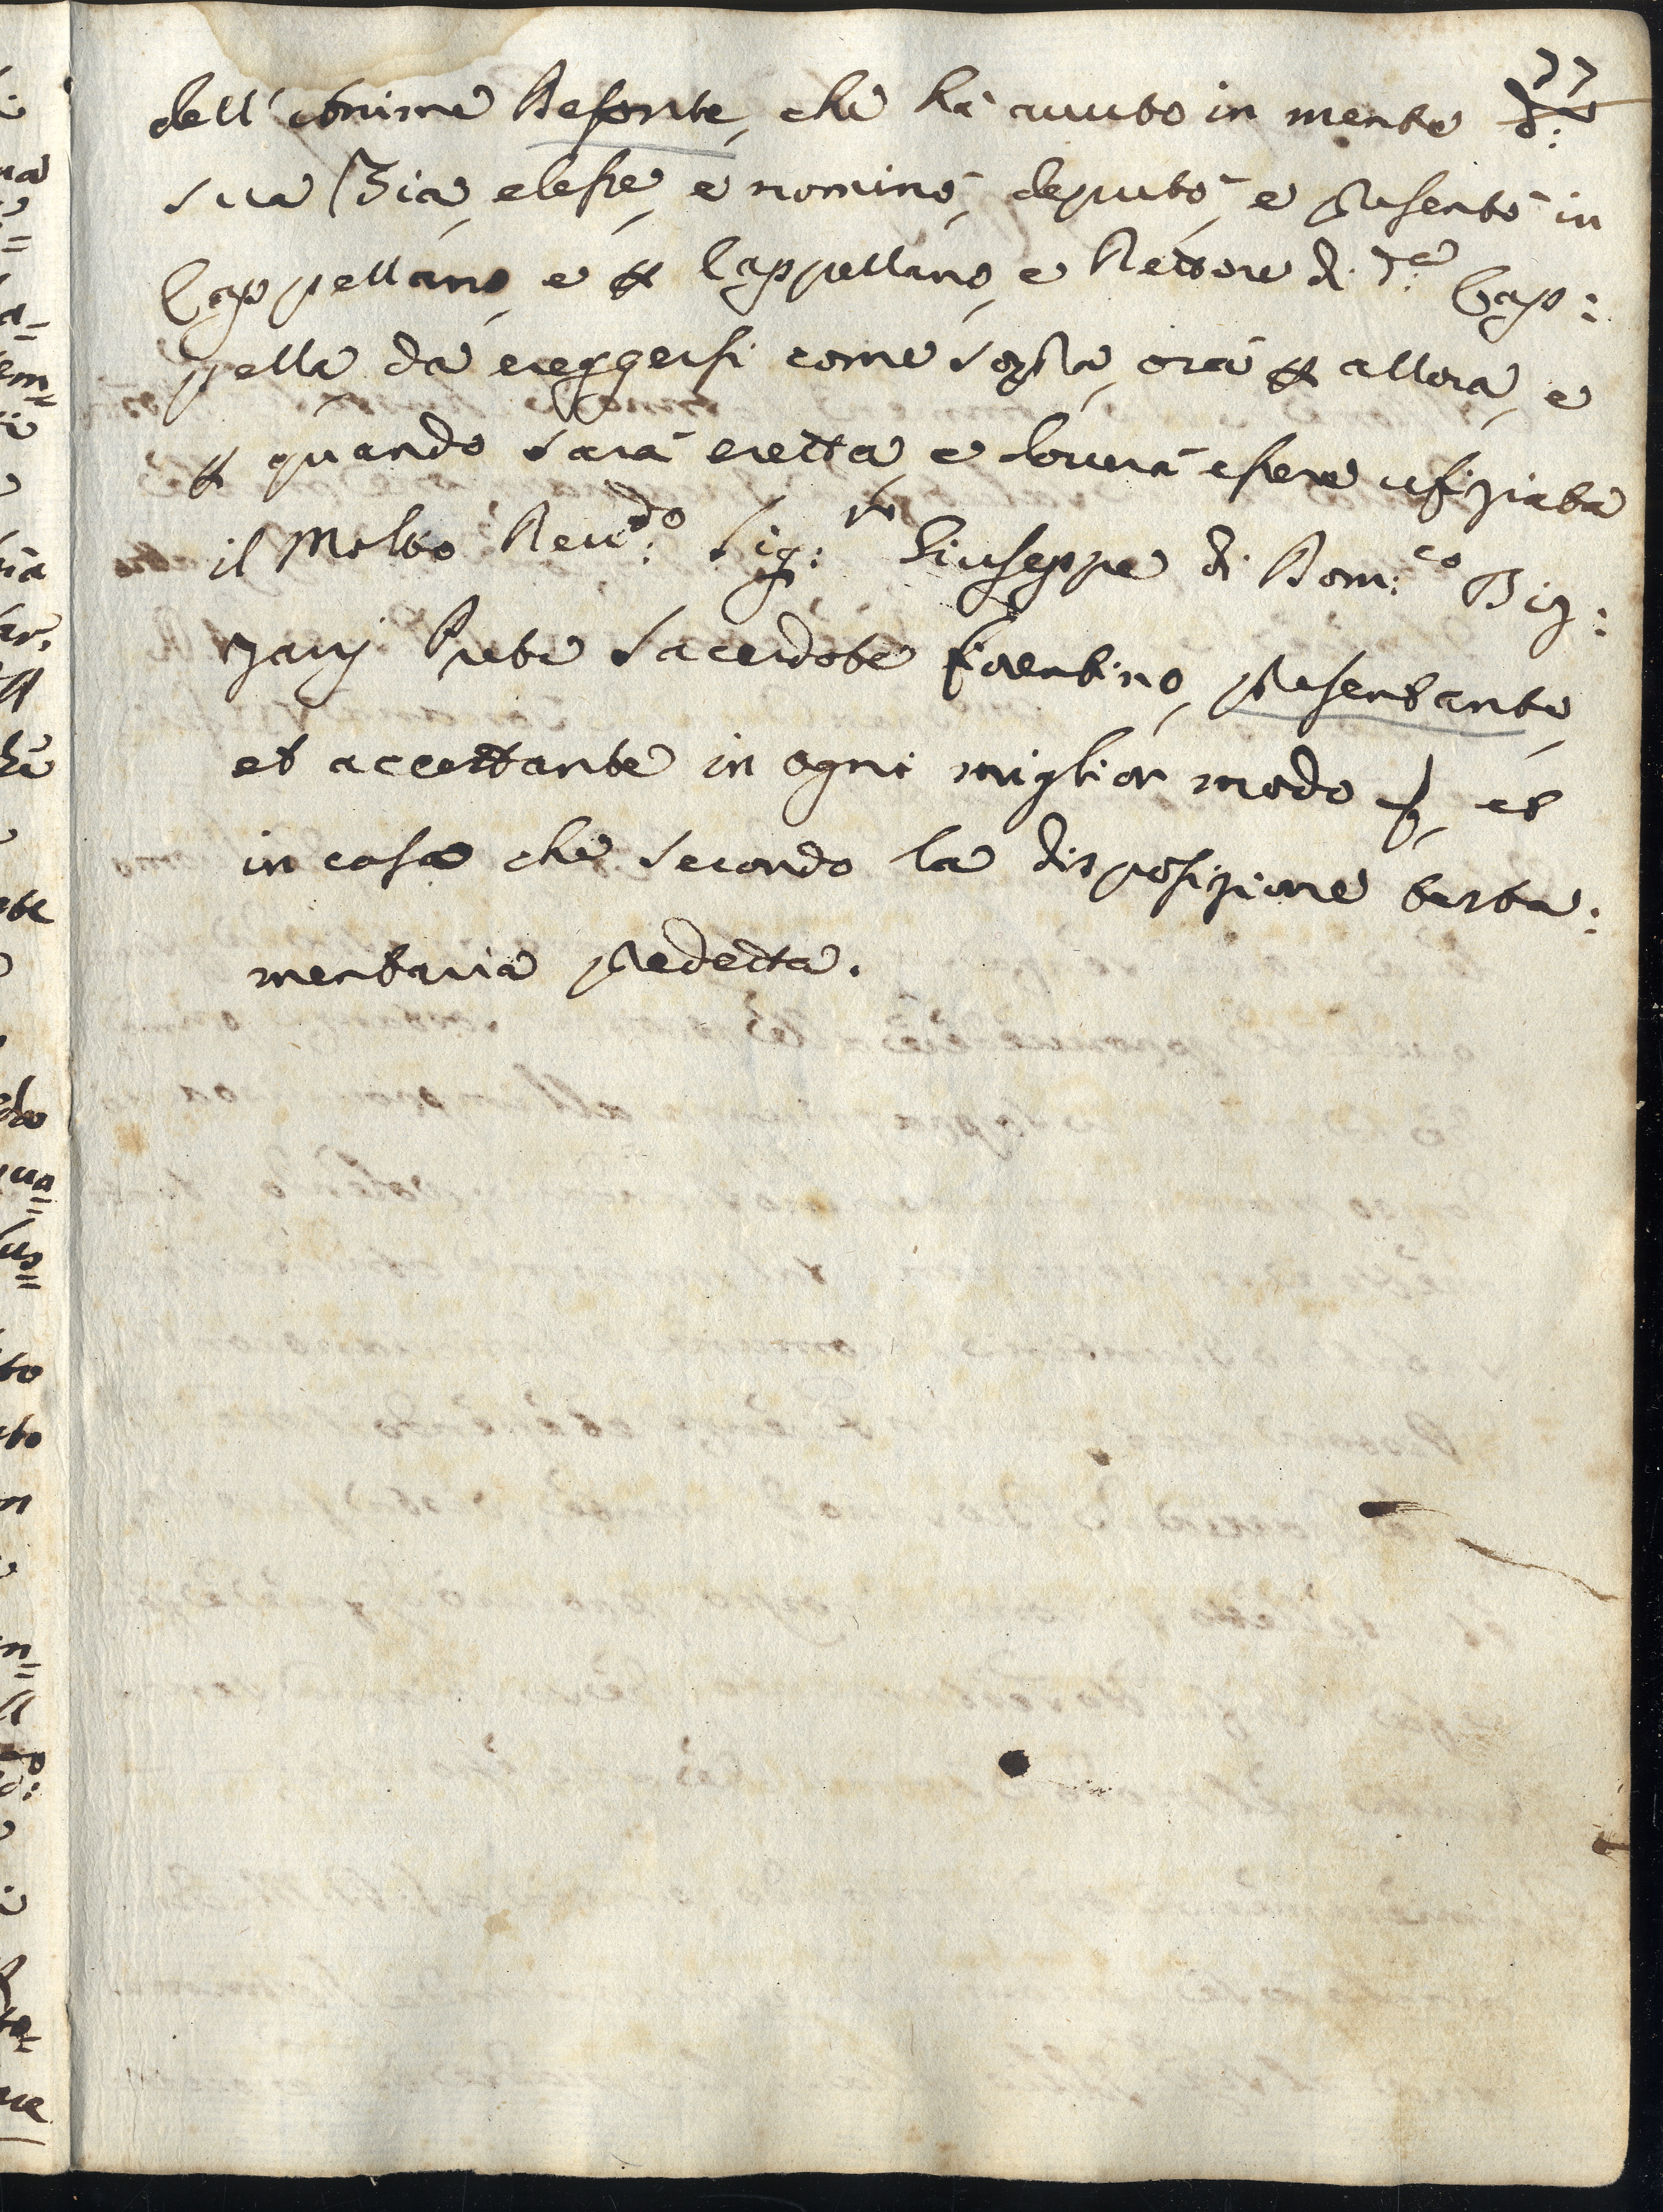 77
dell' Anime Defonte, che hà auuto in mente d:ᵃ
sua Zia, elesse, e nominò, deputò, e presentò in
Cappellano, e per Cappellano, e Rettore di d:ᵃ Cap:
pella da ereggersi come sopra, ora per allora, e
per quando sarà eretta, e douerà essere ufiziata
il Molto Reu:ᵈᵒ Sig:ʳᵉ Giuseppe di Dom:ᶜᵒ Big:
zarij Prete Sacerdote Fiorentino, presentante,
et accettante in ogni miglior modo, et
in caso che secondo la disposizione testa:
mentaria predetta.